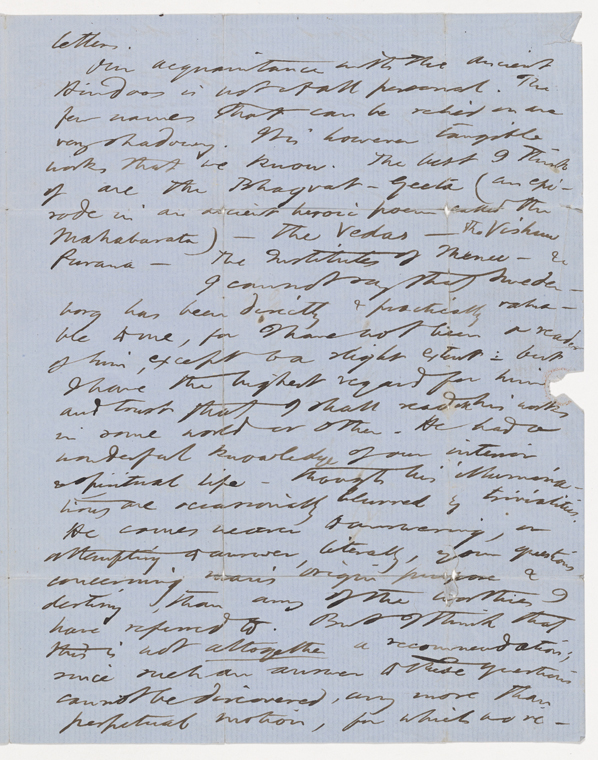 letters.
Our acquaintance with the ancient
Hindoos is not at all personal. The
few names that can be relied on are
very shadowy. It is however tangible
works that we know. The best I think
of are the Bhagvat-Geeta (an epi-
sode in an ancient heroic poem called the
Mahabarata) — The Vedas — the Vishnu
Purana — The Institutes of Menu — &c
I cannot say that Sweden-
borg has been directly & practically valua-
ble to me, for I have not been a reader
of him, except to a slight extent; but
I have the highest regard for him
and trust that I shall read his works
in some world or other. He had a
wonderful knowledge of our interior
& spiritual life — though his illumina-
tions are occasionally blurred by trivialities.
He comes nearer to answering, or
attempting to answer, literally, your questions
concerning man's origin purpose &
destiny, than any of the worthies I
have referred to. But I think that
this is not altogether a recommendation;
since such an answer to these questions
cannot be discovered, any more than
perpetual motion, for which no re-